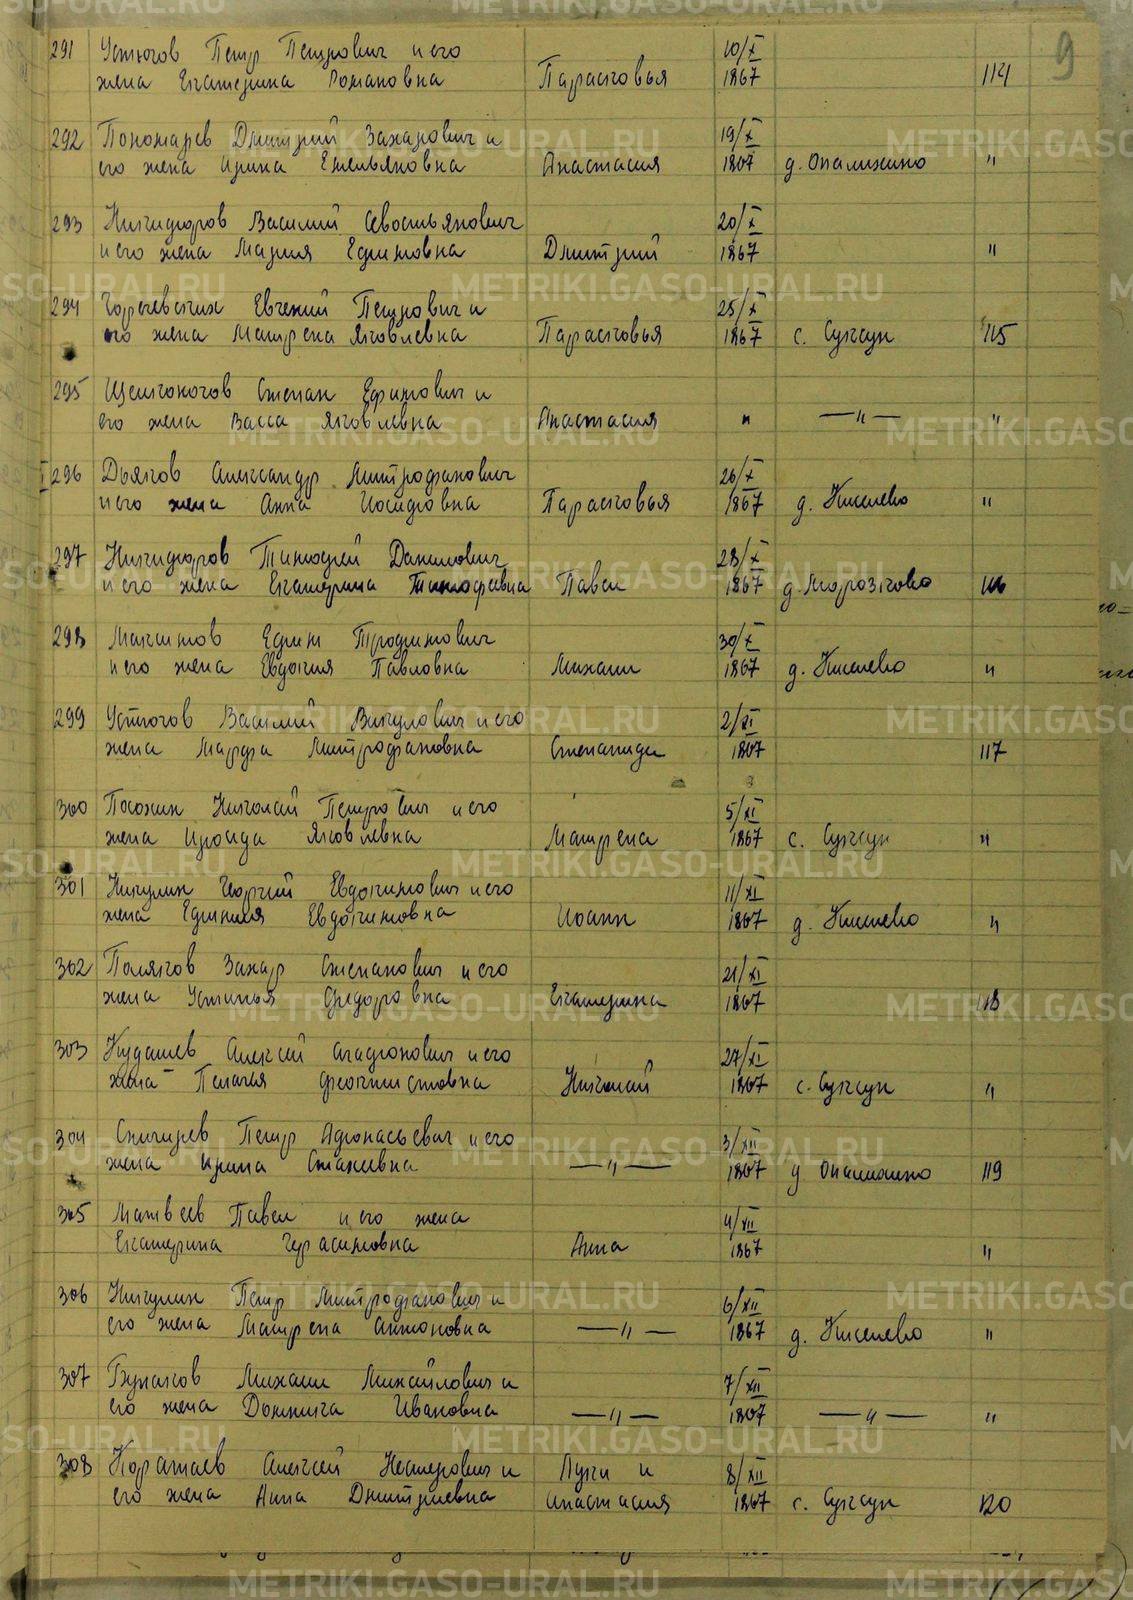 9
291 Устюгов Петр Петрович и его 10/X
жена Екатерина Романовна Парасковья 1867 114
292 Пономарев Дмитрий Захарович и 19/X
его жена Ирина Емельяновна Анастасия 1867 д. Опалихино "
293 Никифоров Василий Севостьянович 20/X
и его жена Мария Ефимовна Дмитрий 1867 "
294 Евгений Петрович и 25/X
его жена Матрена Яковлевна Парасковья 1867 с. Суксун 115
295 Щелконогов Степан Ефимович и
его жена Васса Яковлевна Анастасия " —"— "
296 Дьяков Александр Митрофанович 26/X
и его жена Анна Иосифовна Парасковья 1867 д. Киселево "
297 Никифоров Тимофей Данилович 28/X
и его жена Екатерина Тимофевна Павел 1867 д. Морозково 116
298 Максимов Ефим Трофимович 30/X
и его жена Евдокия Павловна Михаил 1867 д. Киселево "
299 Устюгов Василий Викулович и его 2/XI
жена Марфа Митрофановна Степанида 1867 117
300 Посохин Николай Петрович и его 5/XI
жена Ироида Яковлевна Матрена 1867 с. Суксун "
301 Никулин Георгий Евдокимович и его 11/XI
жена Ефимия Евдокимовна Иоанн 1867 д. Киселево "
302 Поляков Захар Степанович и его 21/XI
жена Устинья Федоровна Екатерина 1867 118
303 Кудашев Алексей Агафонович и его 27/XI
жена Пелагея Феоктистовна Николай 1867 с. Суксун "
304 Снигирев Петр Афонасьевич и его 3/XII
жена Ирина —"— 1867 д Опалихино 119
305 Матвеев Павел и его жена 4/XII
Екатерина Герасимовна Анна 1867 "
306 Никулин Петр Митрофанович и 6/XII
его жена Матрена Антоновна —"— 1867 д. Киселево "
307 Булаков Михаил Михайлович и 7/XII
его жена Домника Ивановна —"— 1867 —"— "
308 Каратаев Алексей Нестерович и Луки и 8/XII
его жена Анна Дмитриевна Анастасия 1867 с. Суксун 120
METRIKI.GASO-URAL.RU